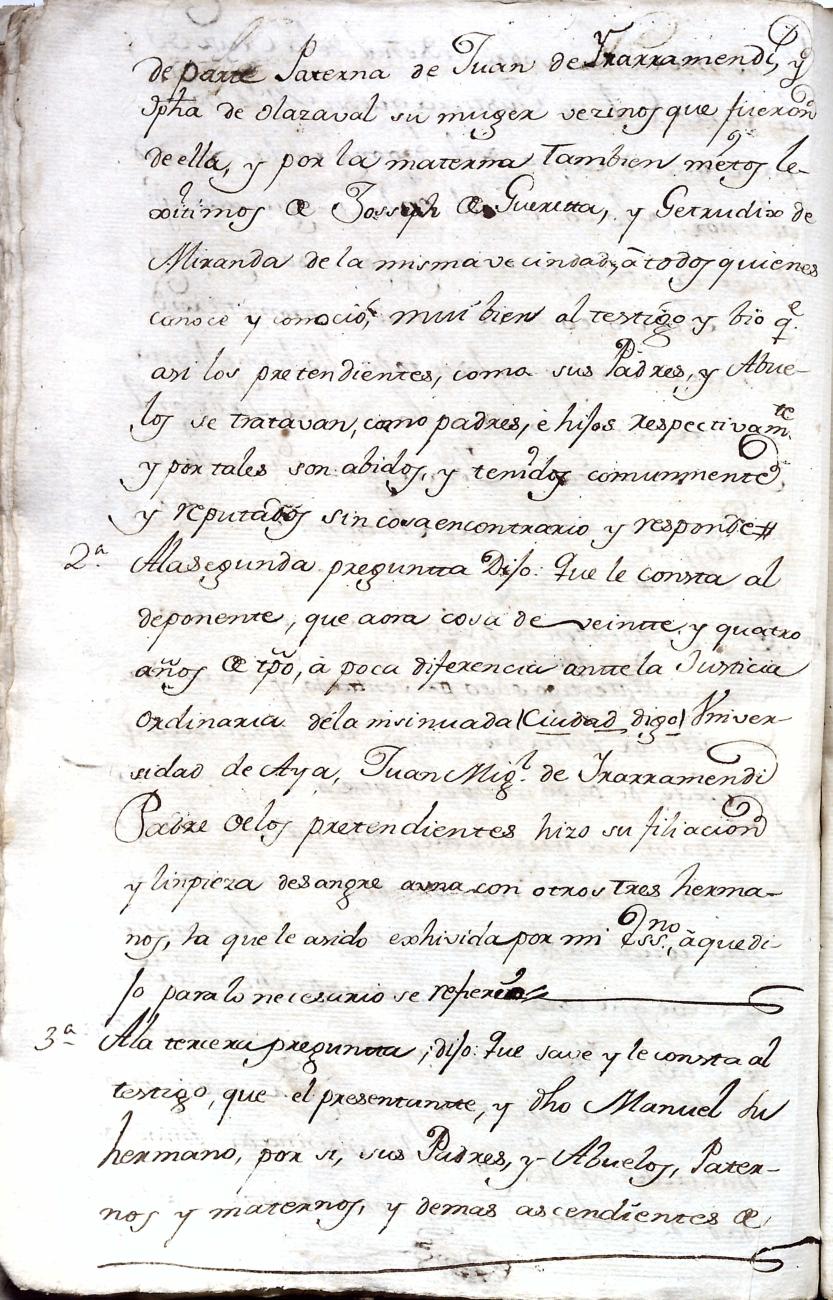 de parte Paterna de Juan de Yrarramendi, y
Jpha de olazaval su muger vezinos que fueron
de ella, y por la materna Tambien nietos le-
xitimos de Joseph de Gueretta, y Getrudix de
Miranda de la misma vecindad, â todos quienes
conoce y conoció, mui bien al testigo y bio q.e
asi los pretendientes, como sus Padres, y Abue-
los se tratavan, como padres, é hijos respectivam.te
y por tales son abidos, y tenidos comunmente
y reputados sin cosa en contrario y responde#
2.a Ala segunda preguntta Dijo: Que le consta al
deponente, que aora cosa de veintte y quatro
años de tpõ, â poca diferencia antte la Justicia
ordinaria dela insinuada (Ciudad digo) Vniver-
sidad de Aya, Juan Mig.l de Yrarramendi
Padre delos pretendientes hizo su filiacion
y linpieza desangre auna con otros Tres herma-
nos, la que le asido exhivida por mi Ess.no, â que di-
jo para lo necesario se refiere
3.a Ala tercera preguntta, dijo: Que save y le consta al
testigo, que el presentantte, y dho Manuel su
hermano, por si, sus Padres, y Abuelos, Pater-
nos y maternos, y demas ascendientes de